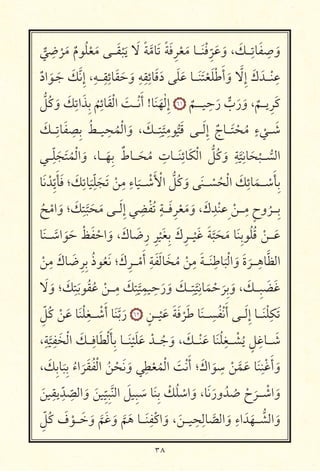 وَصِفَاتِكَ، وَعَرِّفْنَا مَعْرِفَةً تَامَّةً لَا يَبْقَى مَعْلُومٌ مَرْضِيٌّ
عِنْدَكَ إِلَّا وَأَطْلَعْتَنَا عَلَى دَقَائِقِهِ وَحَقَائِقِهِ، إِنَّكَ جَوَادٌ
كَرِيمٌ، وَرَبٌّ رَحِيمٌ ۝ إِلَهَنَا! أَنْتَ الْقَائِمُ بِذَاتِكَ وَكُلُّ
شَيْءٍ مُحْتَاجٌ إِلَى قَيُّومِيَّتِكَ، وَالْمُحِيطُ بِصِفَاتِكَ
السُّبُحَانِيَّةِ وَكُلُّ الْكَائِنَاتِ مُحَاطٌ بِهَا، وَالْمُتَجَلِّي
بِأَسْمَائِكَ الْحُسْنَى وَكُلُّ الْأَشْيَاءِ مِنْ تَجَلِّيَاتِكَ؛ فَأَيِّدْنَا
بِرُوحٍ مِنْ عِنْدِكَ، وَمَعْرِفَةٍ تُفْضِي إِلَى مَحَبَّتِكَ؛ وَامْحُ
عَنْ قُلُوبِنَا مَحَبَّةَ غَيْرِكَ بِغَيْرِ رِضَاكَ، وَاحْفَظْ حَوَاسَّنَا
الظَّاهِرَةَ وَالْبَاطِنَةَ مِنْ مُخَالَفَةِ أَمْرِكَ؛ نَعُوذُ بِرِضَاكَ مِنْ
غَضَبِكَ، وَبِرَحْمَانِيَّتِكَ وَرَحِيمِيَّتِكَ مِنْ عُقُوبَتِكَ؛ وَلَا
تَكِلْنَا إِلَى أَنْفُسِنَا طَرْفَةَ عَيْنٍ ۝ رَبَّنَا أَشْعِلْنَا عَنْ كُلِّ
شَاغِلٍ يُشْغِلُنَا عَنْكَ، وَجُدْ عَلَيْنَا بِأَلْطَافِكَ الْخَفِيَّةِ،
وَأَغْنِنَا عَمَّنْ سِوَاكَ؛ أَنْتَ الْمُعْطِي وَنَحْنُ الْفُقَرَاءُ بِبَابِكَ،
وَاشْرَحْ صُدُورَنَا، وَاسْلُكْ بِنَا سَبِيلَ النَّبِيِّينَ وَالصِّدِّيقِينَ
وَالشُّهَدَاءِ وَالصَّالِحِينَ، وَاكْفِنَا هَمَّ وَغَمَّ وَخَوْفَ كُلِّ
٣٨